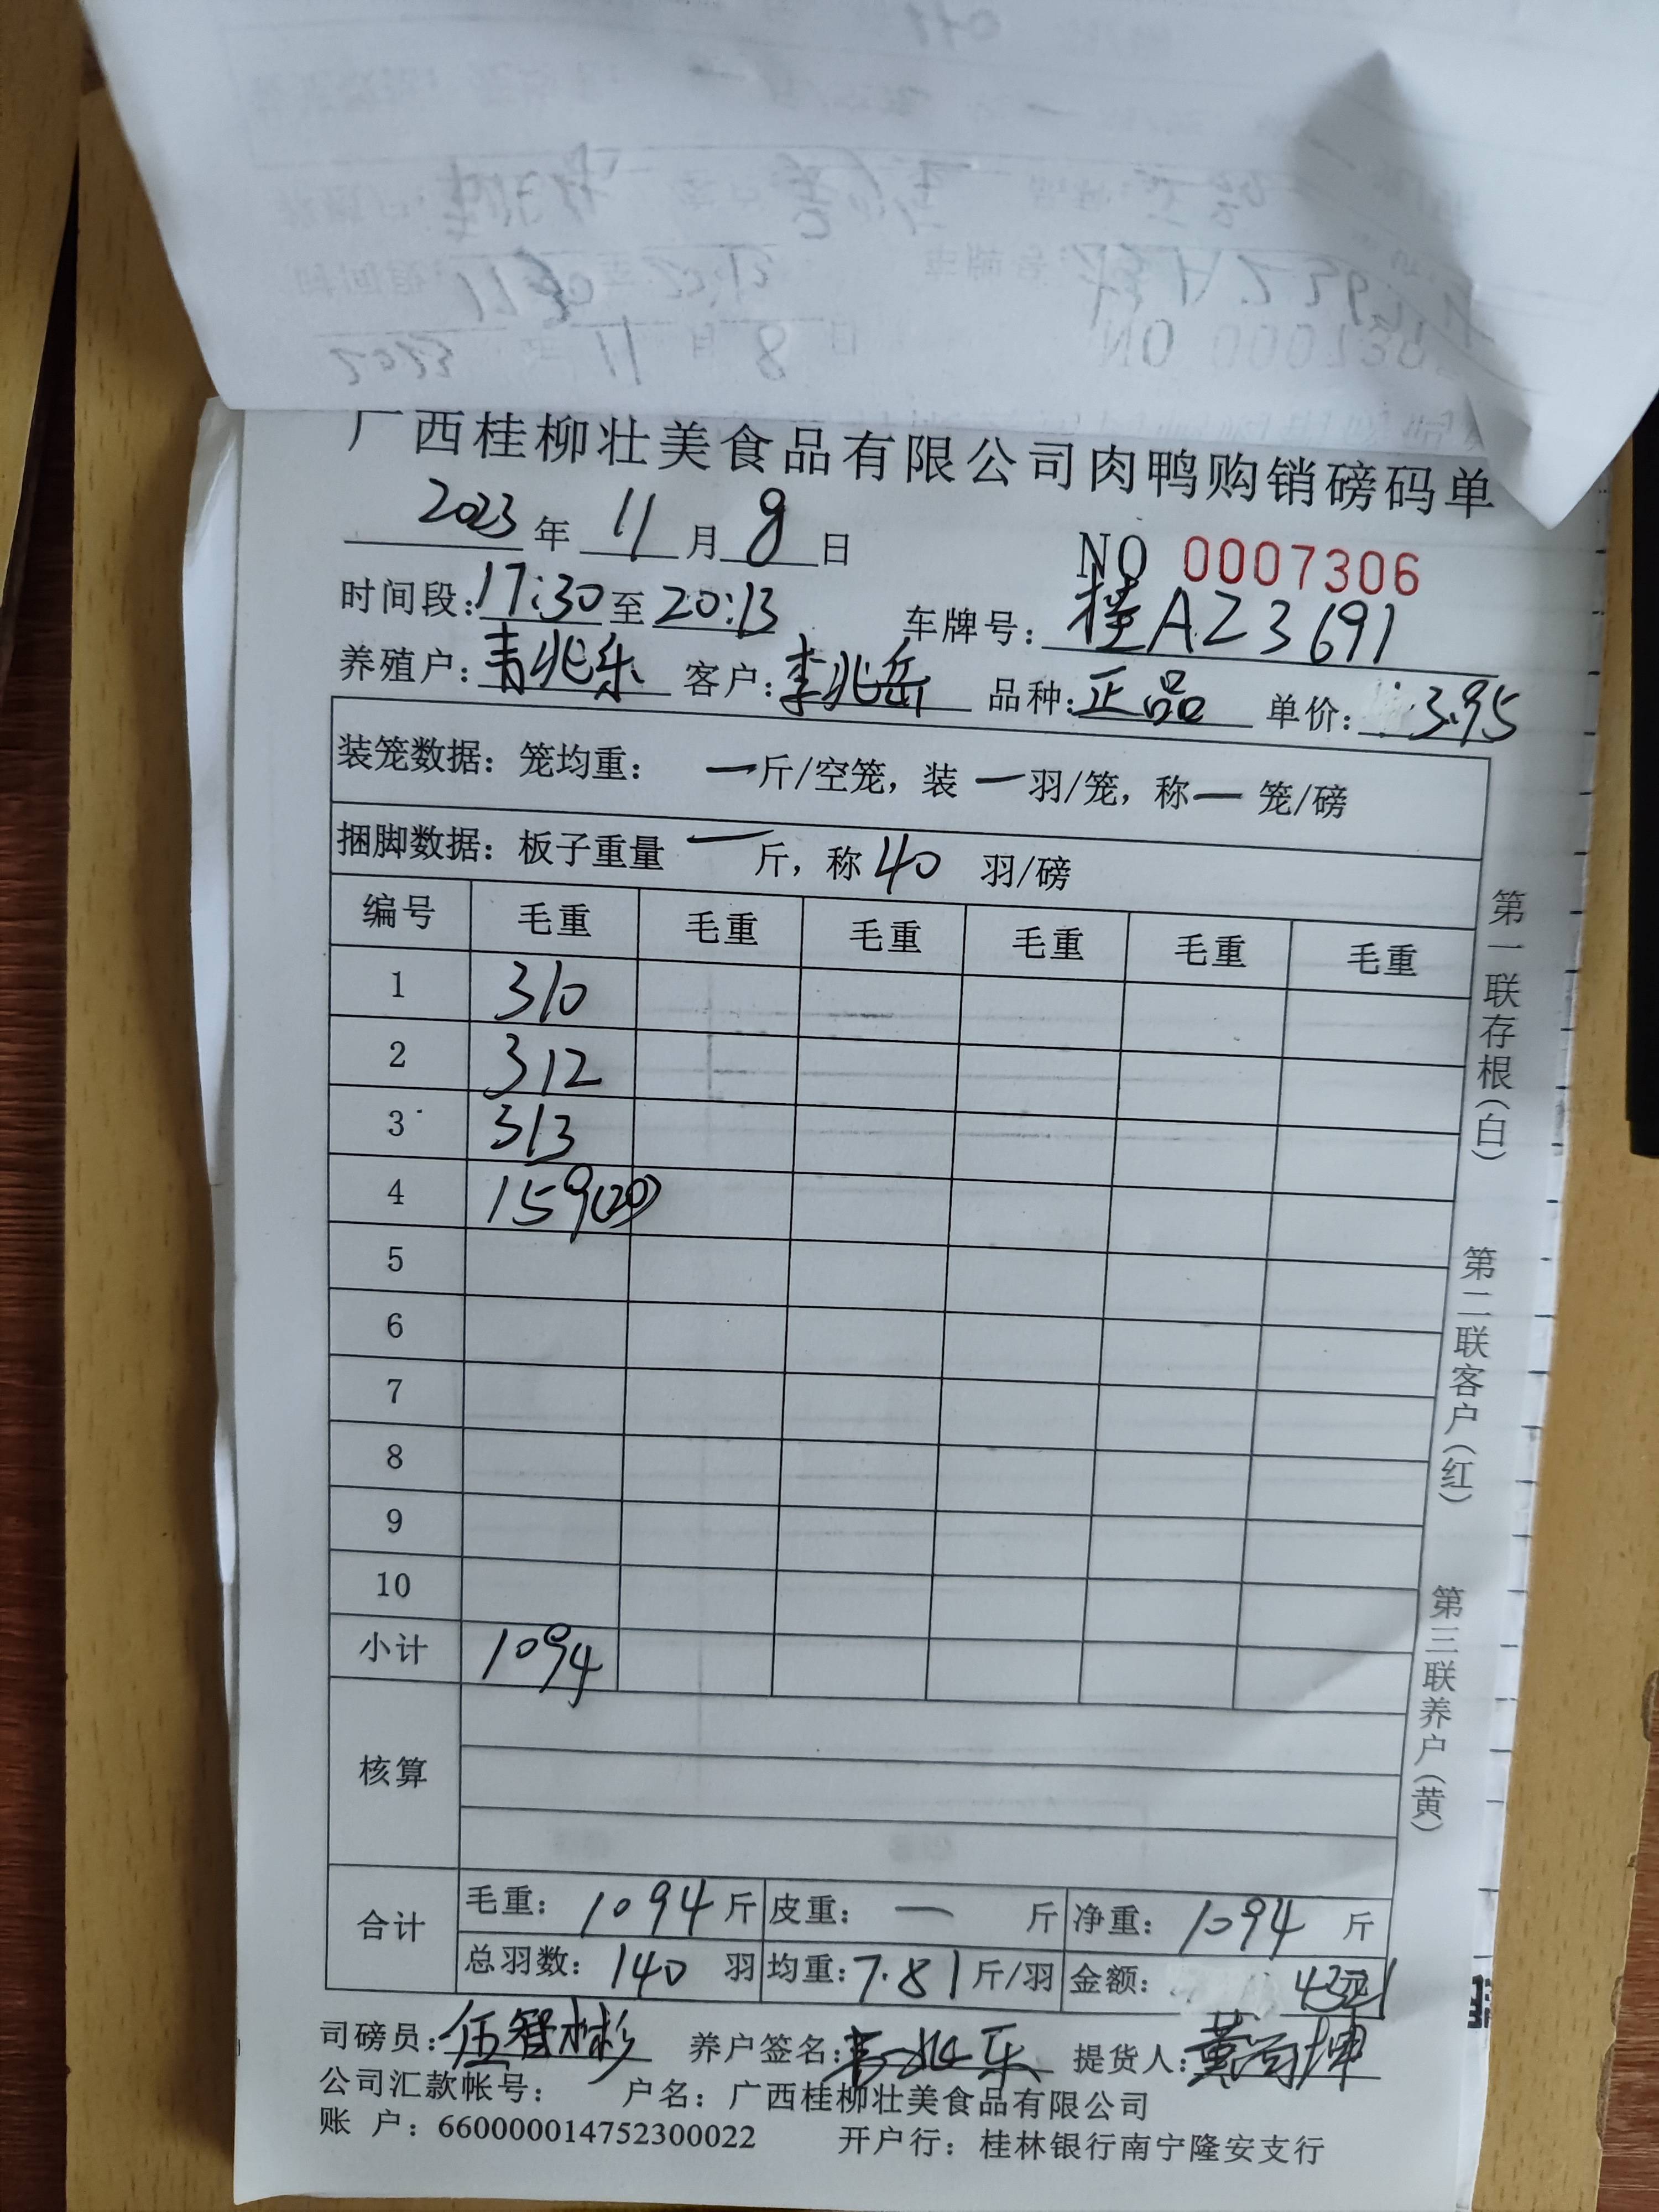 广西桂柳壮美食品有限公司肉鸭购销磅码单
2023年11月8日
NO 0007306
时间段:17:30至20:13 车牌号:桂AZ3691
养殖户:韦兆乐 客户:李兆岳 品种:正品 单价:3.95
装笼数据: 笼均重: 一斤/空笼, 装一羽/笼, 称一笼/磅
捆脚数据: 板子重量 一斤, 称40羽/磅
编号 毛重 毛重 毛重 毛重 毛重 毛重
1 310
2 312
3 313
4 159(20)
5
6
7
8
9
10
小计 1094
核算
合计 毛重: 1094斤 皮重: 一 斤 净重: 1094 斤
总羽数: 140 羽 均重: 7.81斤/羽 金额: 4321
司磅员:伍智彬 养户签名:韦兆乐 提货人:黄
公司汇款帐号: 户名: 广西桂柳壮美食品有限公司
账 户: 660000014752300022 开户行: 桂林银行南宁隆安支行
第一联存根(白)
第二联客户(红)
第三联养户(黄)